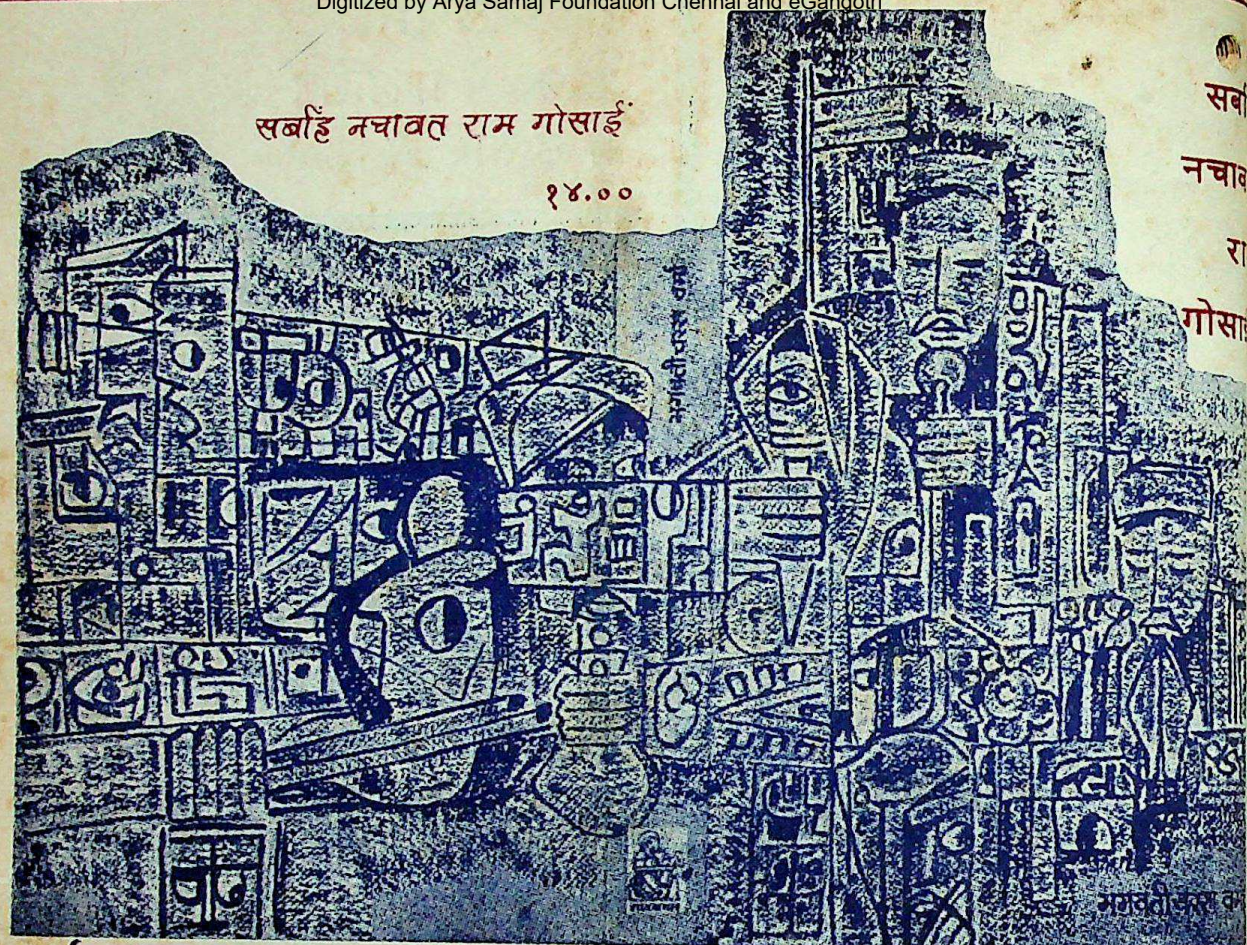 Digitized by Arya Samaj Foundation Chennai and eGangotri
सबहिं नचावत राम गोसाईं
१४.००
भगवती चरण वर्मा
सब
नचाव
रा
गोसा
भगवतीचरण व